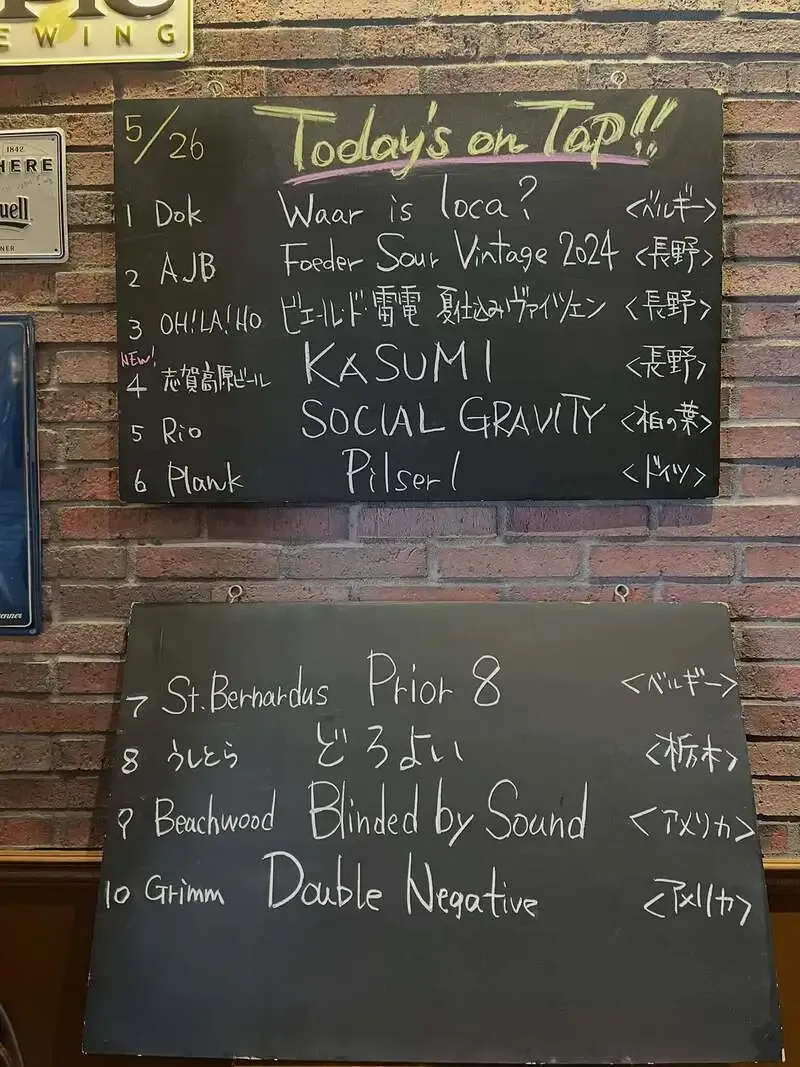 EWING
1842
HERE
uell
NER
enner
5/26 Today's on Tap!!
1 Dok Waar is loca? <ベルギー>
2 AJB Foeder Sour Vintage 2024 <長野>
3 OH!LA!HO ビエール・ド・雷電 夏仕込みヴァイツェン <長野>
NEW!
4 志賀高原ビール KASUMI <長野>
5 Rio SOCIAL GRAVITY <柏の葉>
6 Plank Pilserl <ドイツ>
7 St.Bernardus Prior 8 <ベルギー>
8 うしとら どろよい <栃木>
9 Beachwood Blinded by Sound <アメリカ>
10 Grimm Double Negative <アメリカ>